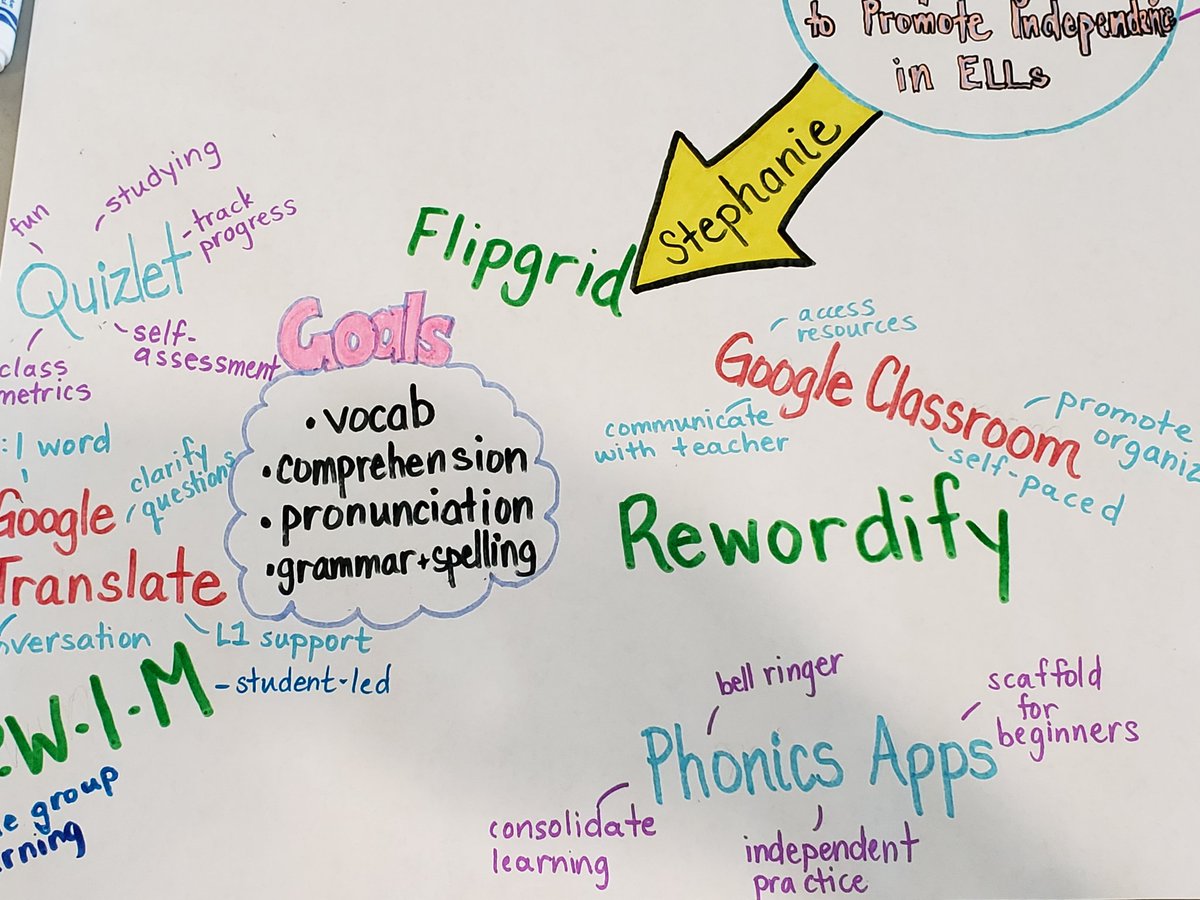 to Promote Independence
in ELLs
Stephanie
Flipgrid
fun
studying
-track
progress
Quizlet
class
metrics
self-
assessment
Goals
• vocab
• comprehension
• pronunciation
• grammar + spelling
access
resources
Google Classroom
communicate
with teacher
promote
organiz
self-paced
:1 word
clarify
questions
Google
Translate
L1 support
Rewordify
W·I·M
- student-led
group
bell ringer
scaffold
for
beginners
Phonics Apps
consolidate
learning
independent
practice